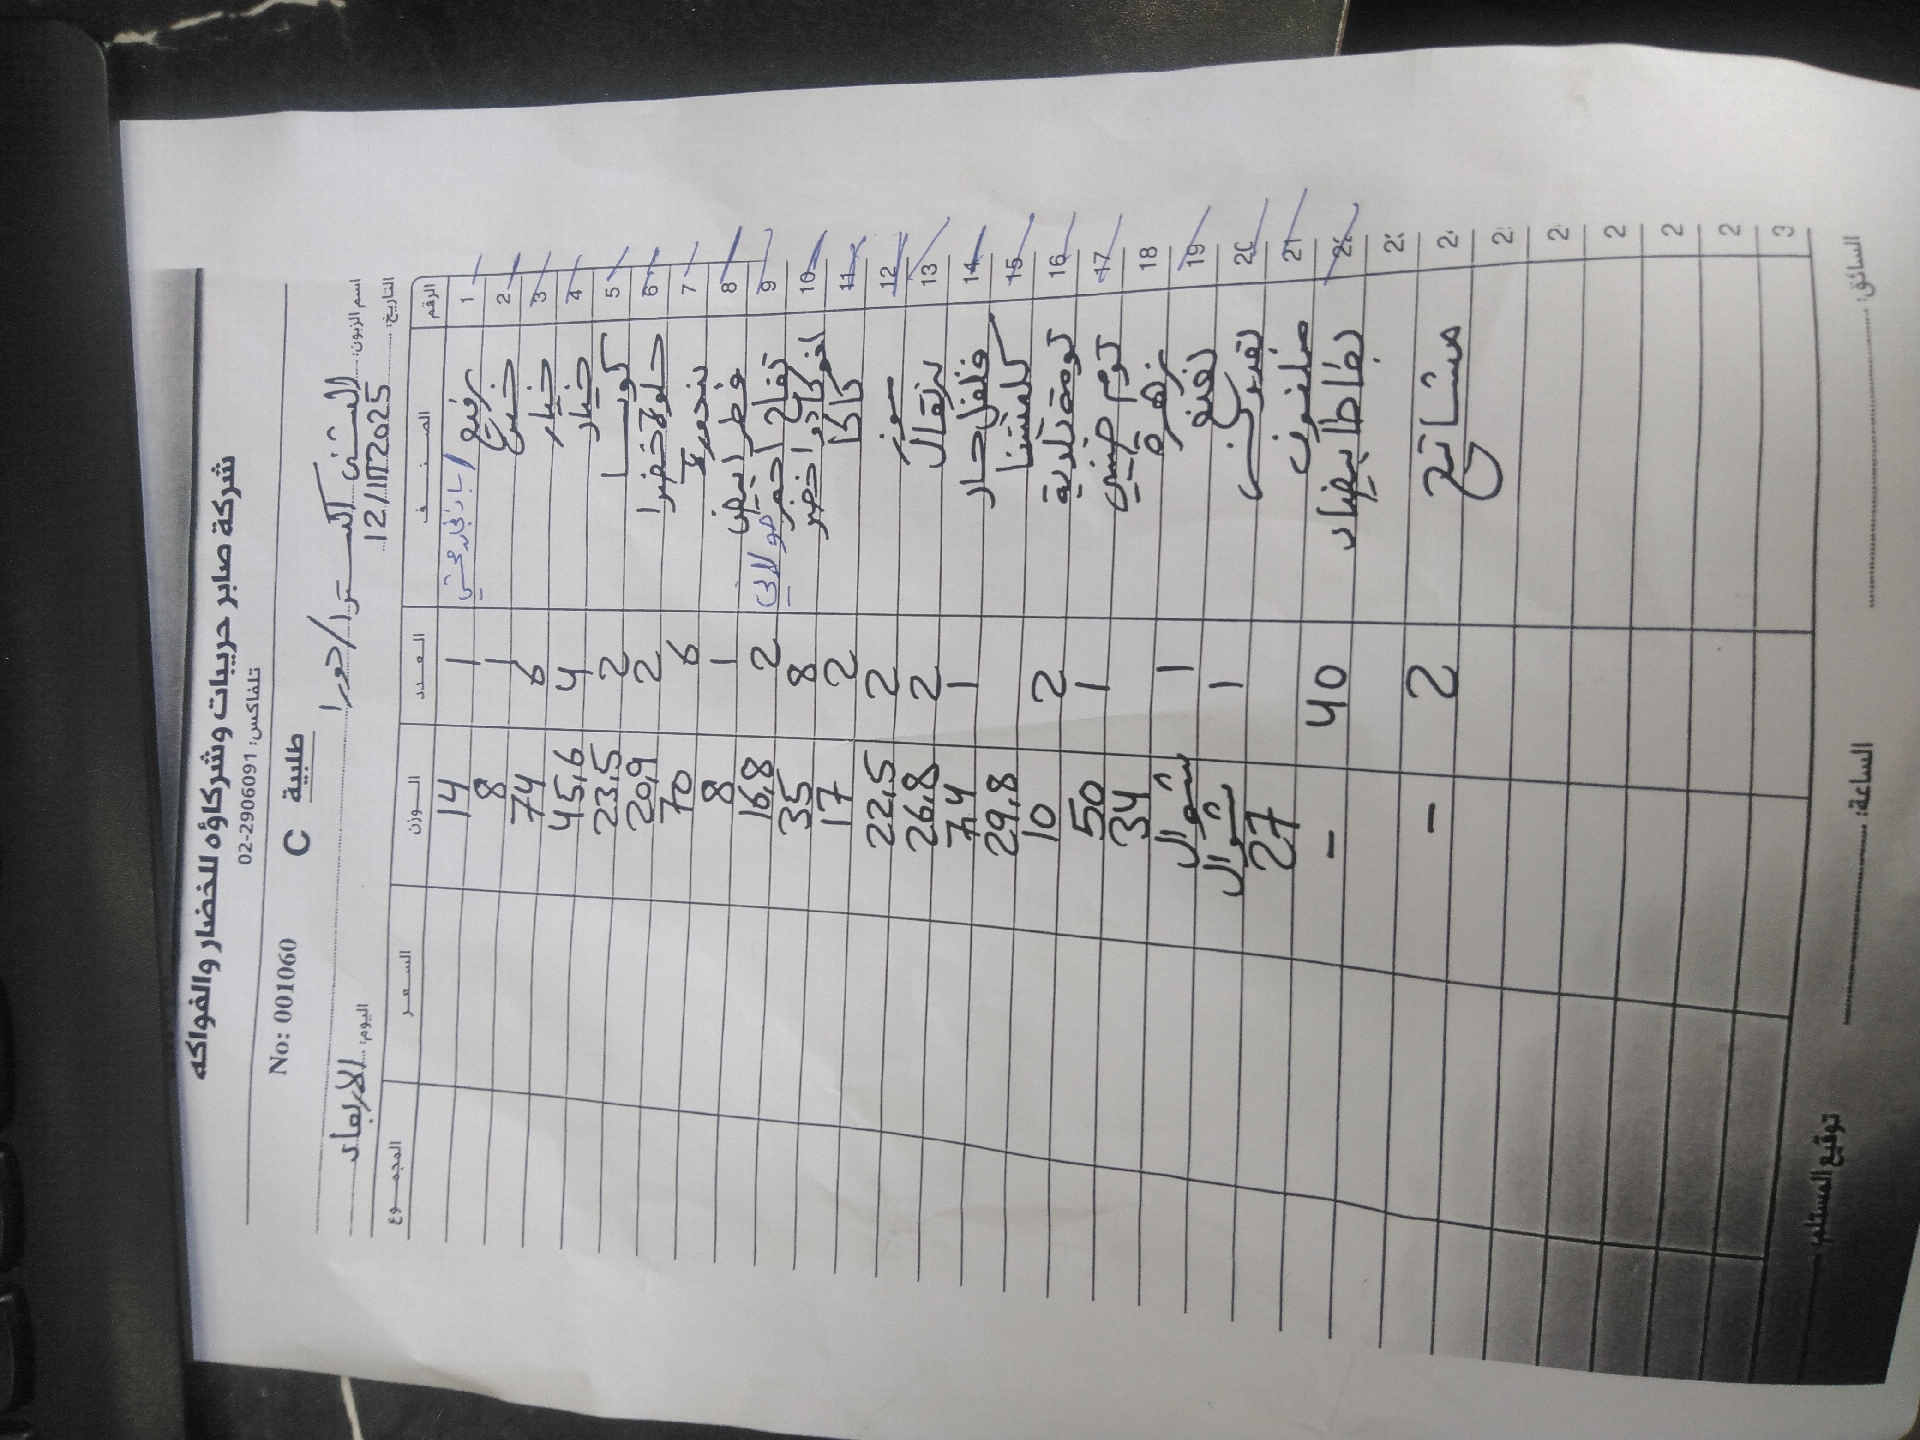 شركة صابر حريبات وشركاؤه للخضار والفواكه
تلفاكس: 02-2906091
No: 001060 C طلبية
اسم الزبون: اكسترا/دورا
التاريخ: 12/11/2025 اليوم: الاربعاء
الرقم الصنف العدد الوزن السعر المجموع
1 رفيع 1 14
2 خس 1 8
3 خيار 6 74
4 خيار 4 45,6
5 كوسا 2 23,5
6 حلوة خضرا 2 20,9
7 بندورة 6 70
8 فطر ابيض 1 8
9 تفاح احمر 2 16,8
10 افوكادو اخضر 8 35
11 كاكا 2 17
12 موز 2 22,5
13 برتقال 2 26,8
14 فلفل حار 1 7,4
15 كلمنتينا 29,8
16 ثومة بلدية 2 10
17 ثوم صيني 1 50
18 زهرة 34
19 1 شوال
20 1 شوال
21 27
22 بطاطا بيضاء 40 -
2 مشاتيح 2 -
2
2
2
2
2
3
السائق: الساعة: توقيع المستلم: